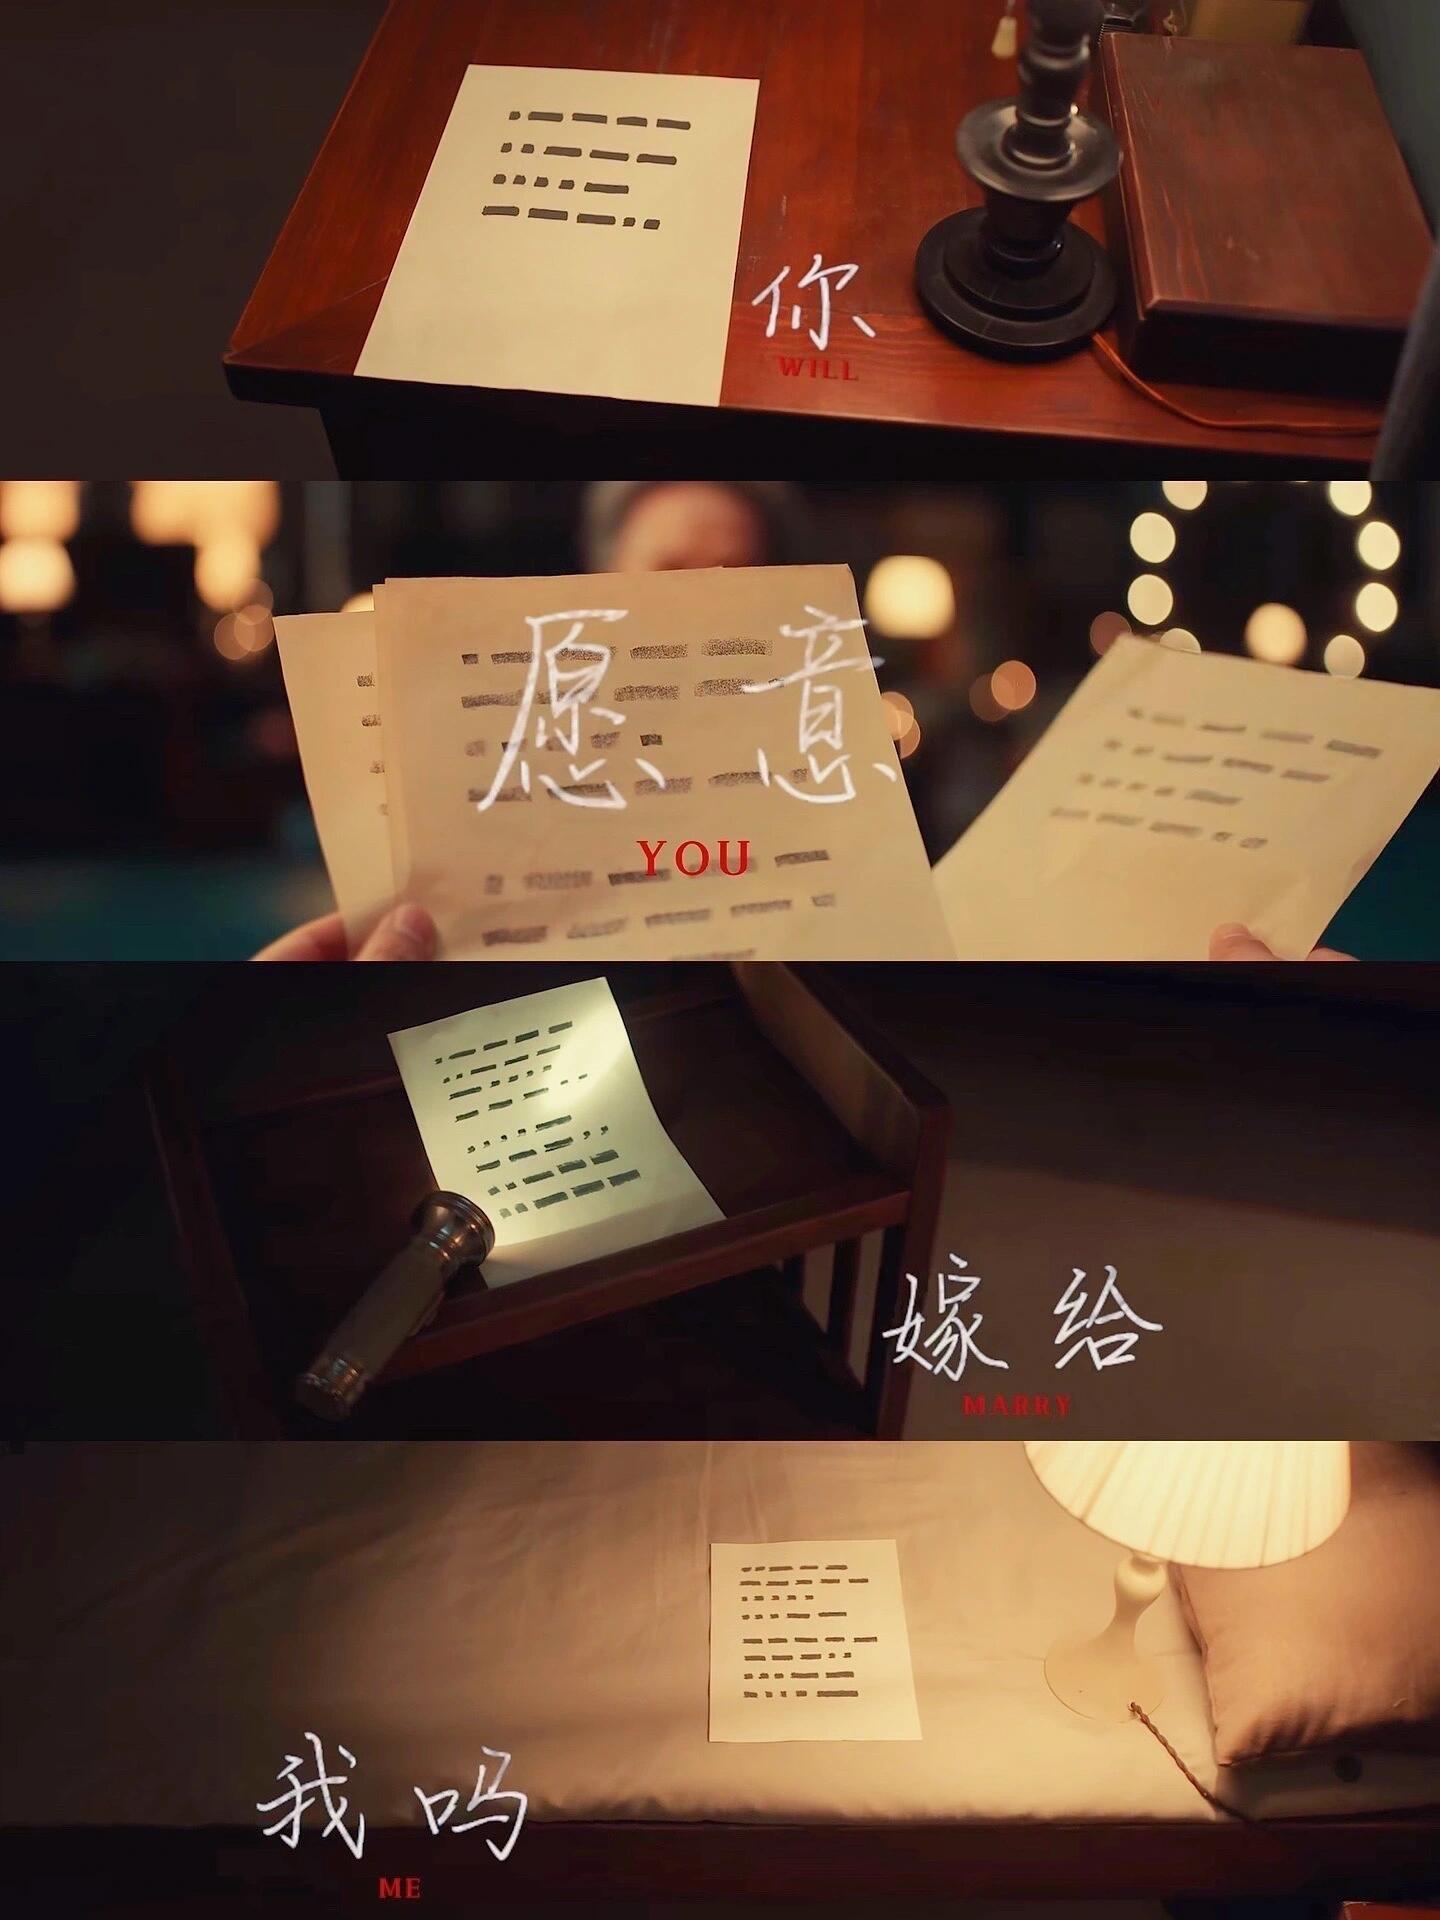 你
WILL
愿意
YOU
嫁给
MARRY
我吗
ME